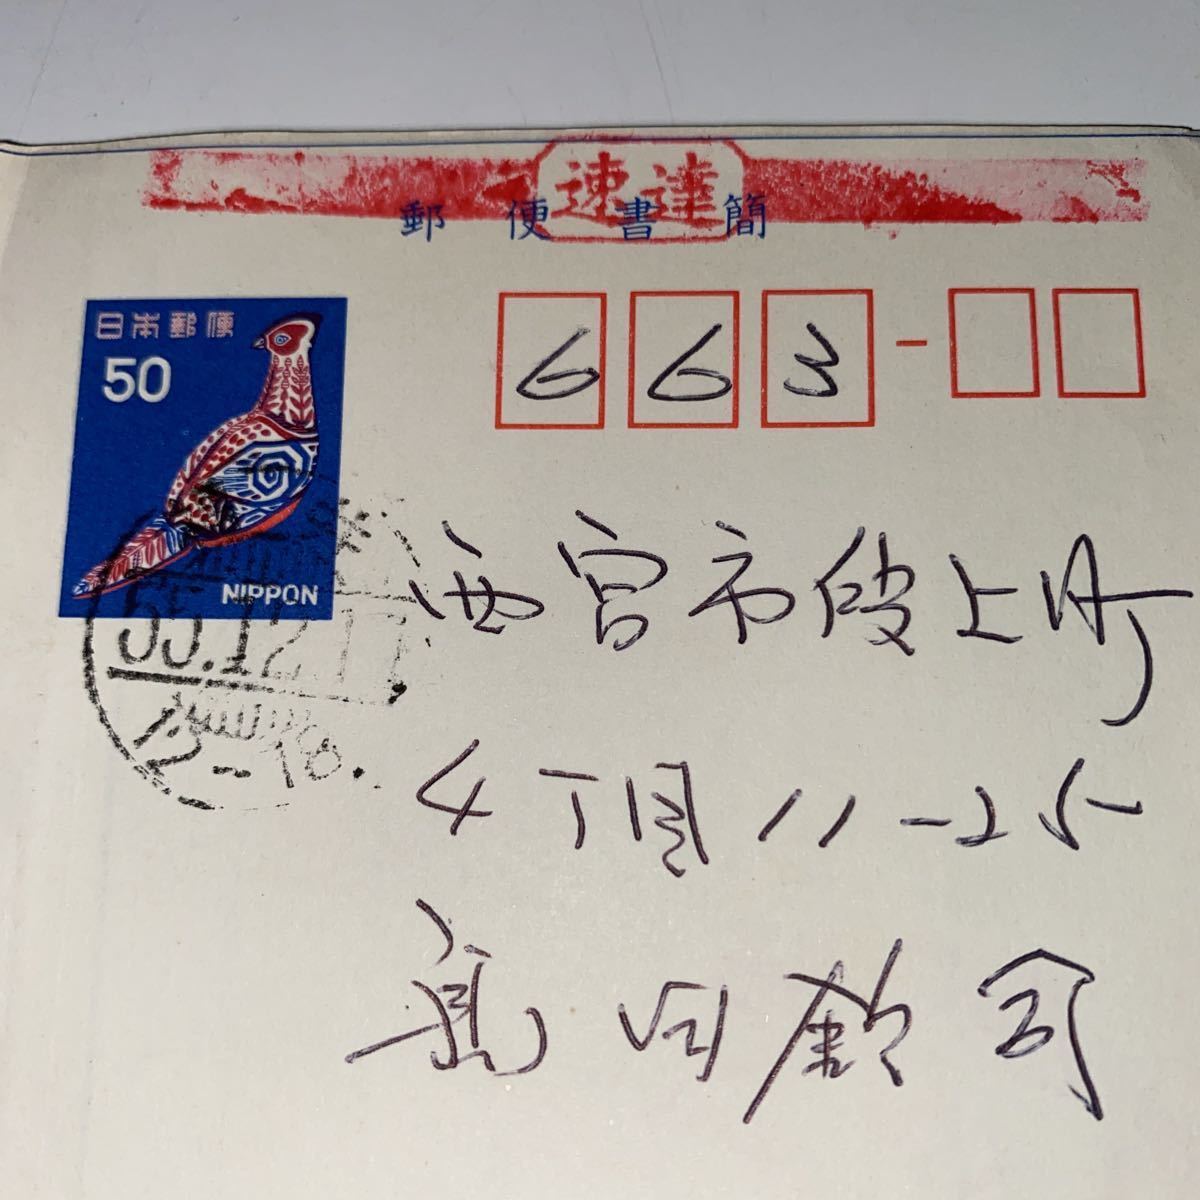 速達
郵便書簡
日本郵便
50
NIPPON
663
西宮市段上町
4丁目11-25
55.12
12-18